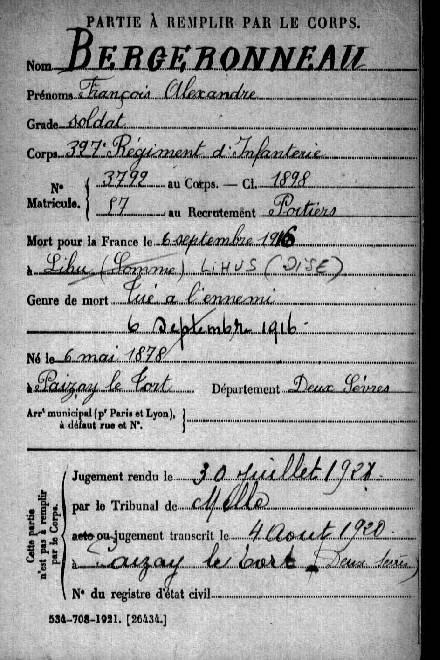 PARTIE À REMPLIR PAR LE CORPS.
Nom BERGERONNEAU
Prénoms François Alexandre
Grade soldat
Corps 397e Régiment d'Infanterie
N° Matricule. { 3799 au Corps. — Cl. 1898
87 au Recrutement Poitiers
Mort pour la France le 6 septembre 1916
à Lihu (Somme) LIHUS (OISE)
Genre de mort Tué a l'ennemi
6 septembre 1916
Né le 6 mai 1878
à Paizay le Tort Département Deux Sèvres
Arrt municipal (pr Paris et Lyon), à défaut rue et N°.
Cette partie n'est pas à remplir par le Corps.
Jugement rendu le 30 juillet 192
par le Tribunal de Melle
acte ou jugement transcrit le 4 Aout 1920
à Paizay le Tort (Deux Sèvres)
N° du registre d'état civil
534-708-1921. [26434.]